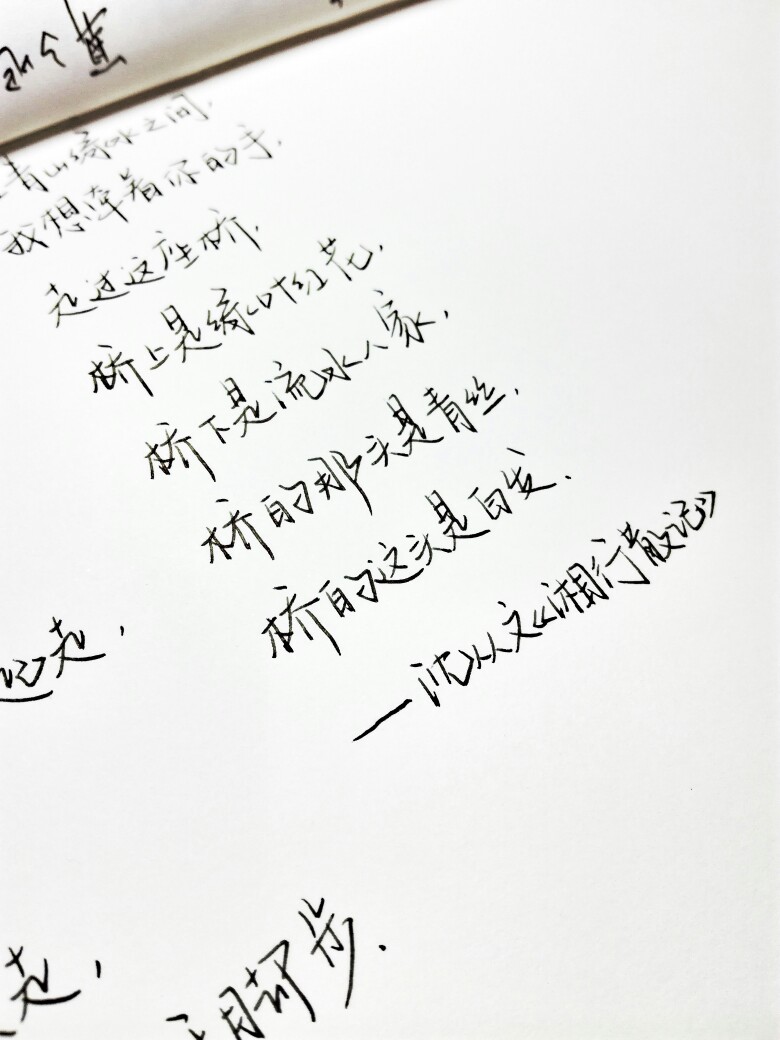 青山绿水之间,
我想牵着你的手,
走过这座桥,
桥上是绿叶红花,
桥下是流水人家,
桥的那头是青丝,
桥的这头是白发.
—沈从文《湘行散记》
起,
起,
步.